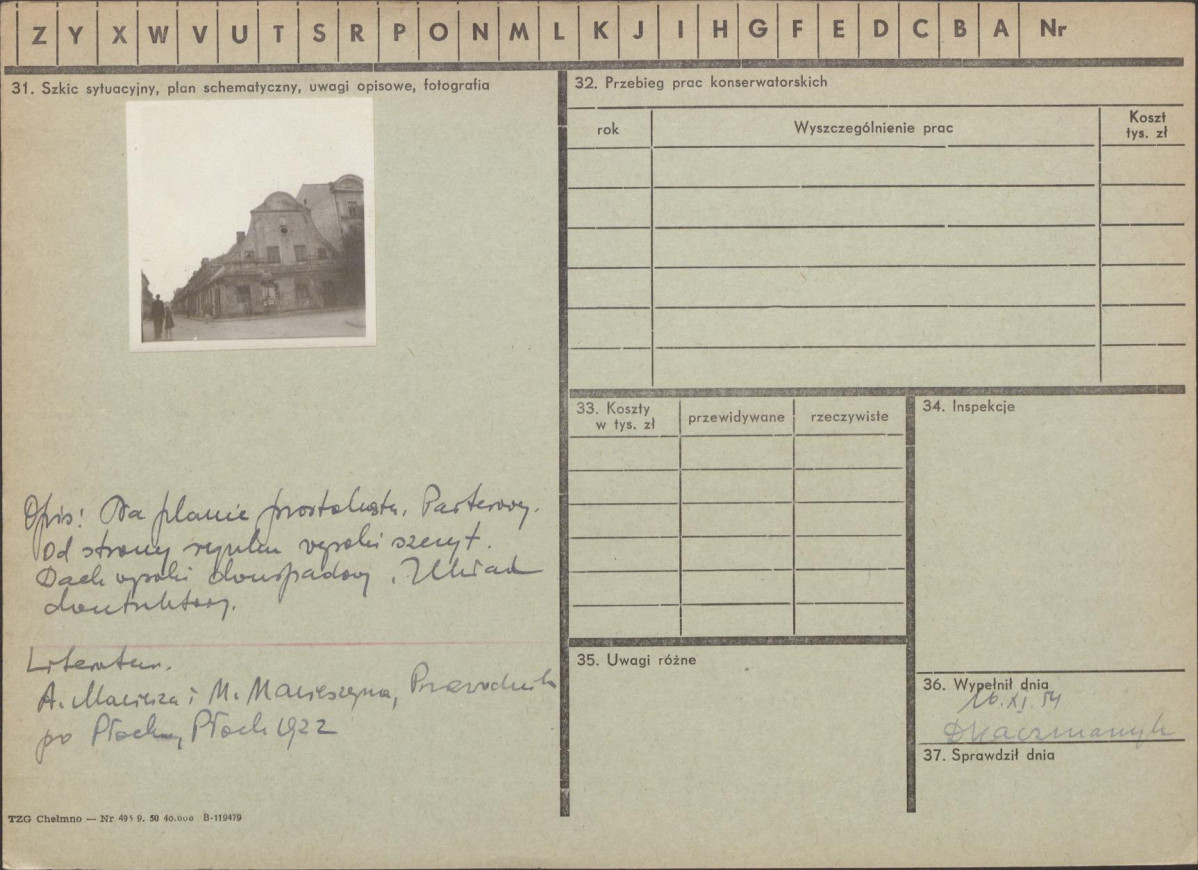 Z Y X W V U T S R P O N M L K J I H G F E D C B A Nr
31. Szkic sytuacyjny, plan schematyczny, uwagi opisowe, fotografia
Opis: Na planie prostokąta. Parterowy.
Od strony rynku wysoki szczyt.
Dach wysoki dwuspadowy. Układ
dwutraktowy.
Literatura.
A. Maciesza i M. Macieszyna, Przewodnik
po Płocku, Płock 1922
TZG Chełmno — Nr 9. 50 40.000 B-119479
32. Przebieg prac konserwatorskich
rok
Wyszczególnienie prac
Koszt
tys. zł
33. Koszty
w tys. zł
przewidywane
rzeczywiste
34. Inspekcje
35. Uwagi różne
36. Wypełnił dnia
XI. 54
37. Sprawdził dnia